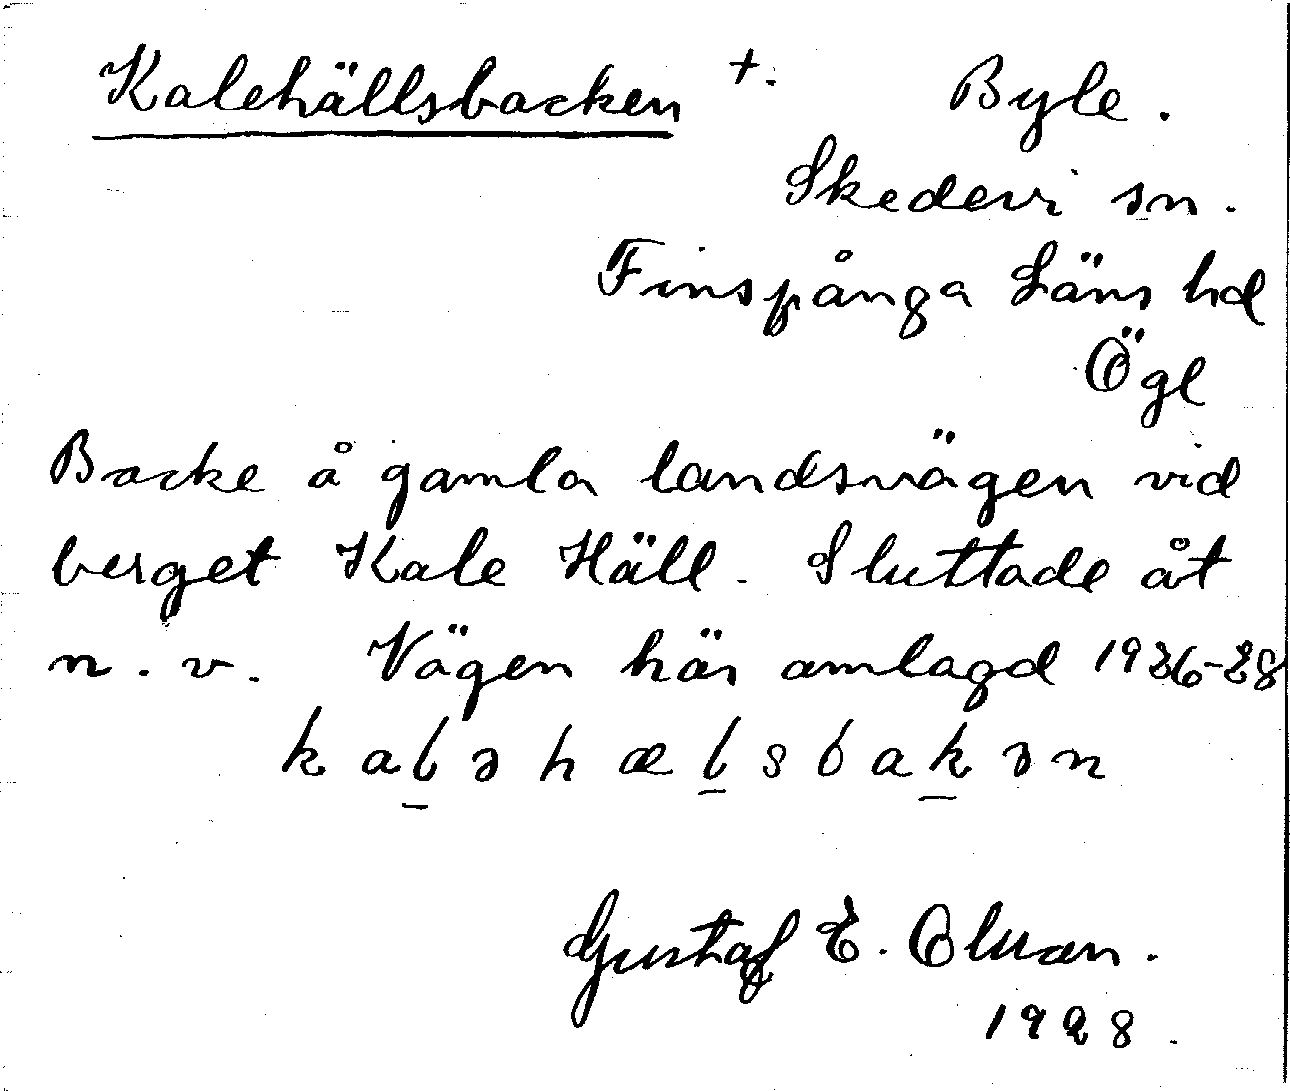 Kalehällsbacken +. Byle.
Skedevi sn.
Finspånga Läns hd
Ögl
Backe å gamla landsvägen vid
berget Kale Häll. Sluttade åt
n. v. Vägen här omlagd 1926-28
kaləhælsbakən
Gustaf E.
1928.